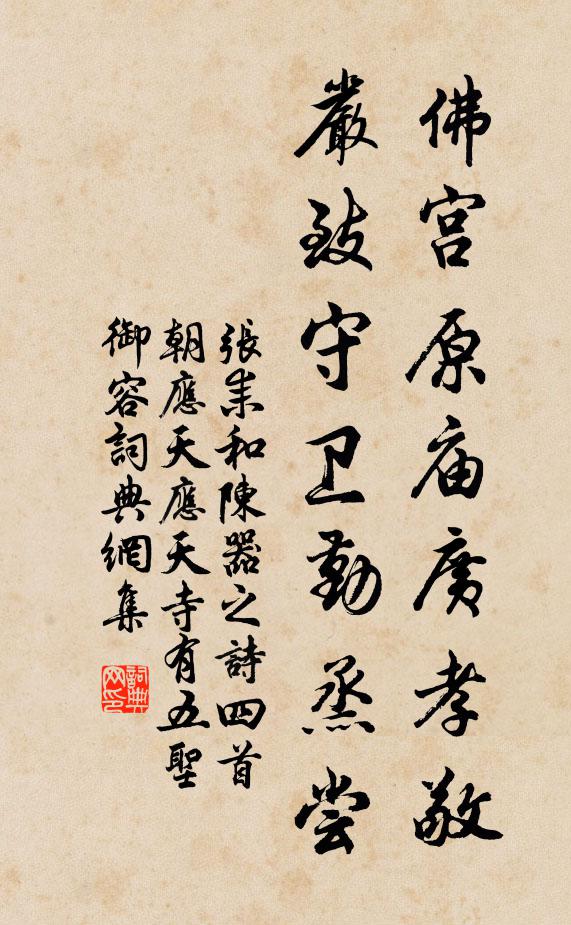 佛宫原庙广孝敬
嚴致守卫勤烝尝
張耒和陳器之詩四首
朝應天應天寺有五聖
御容詞典網集
詞典
网印